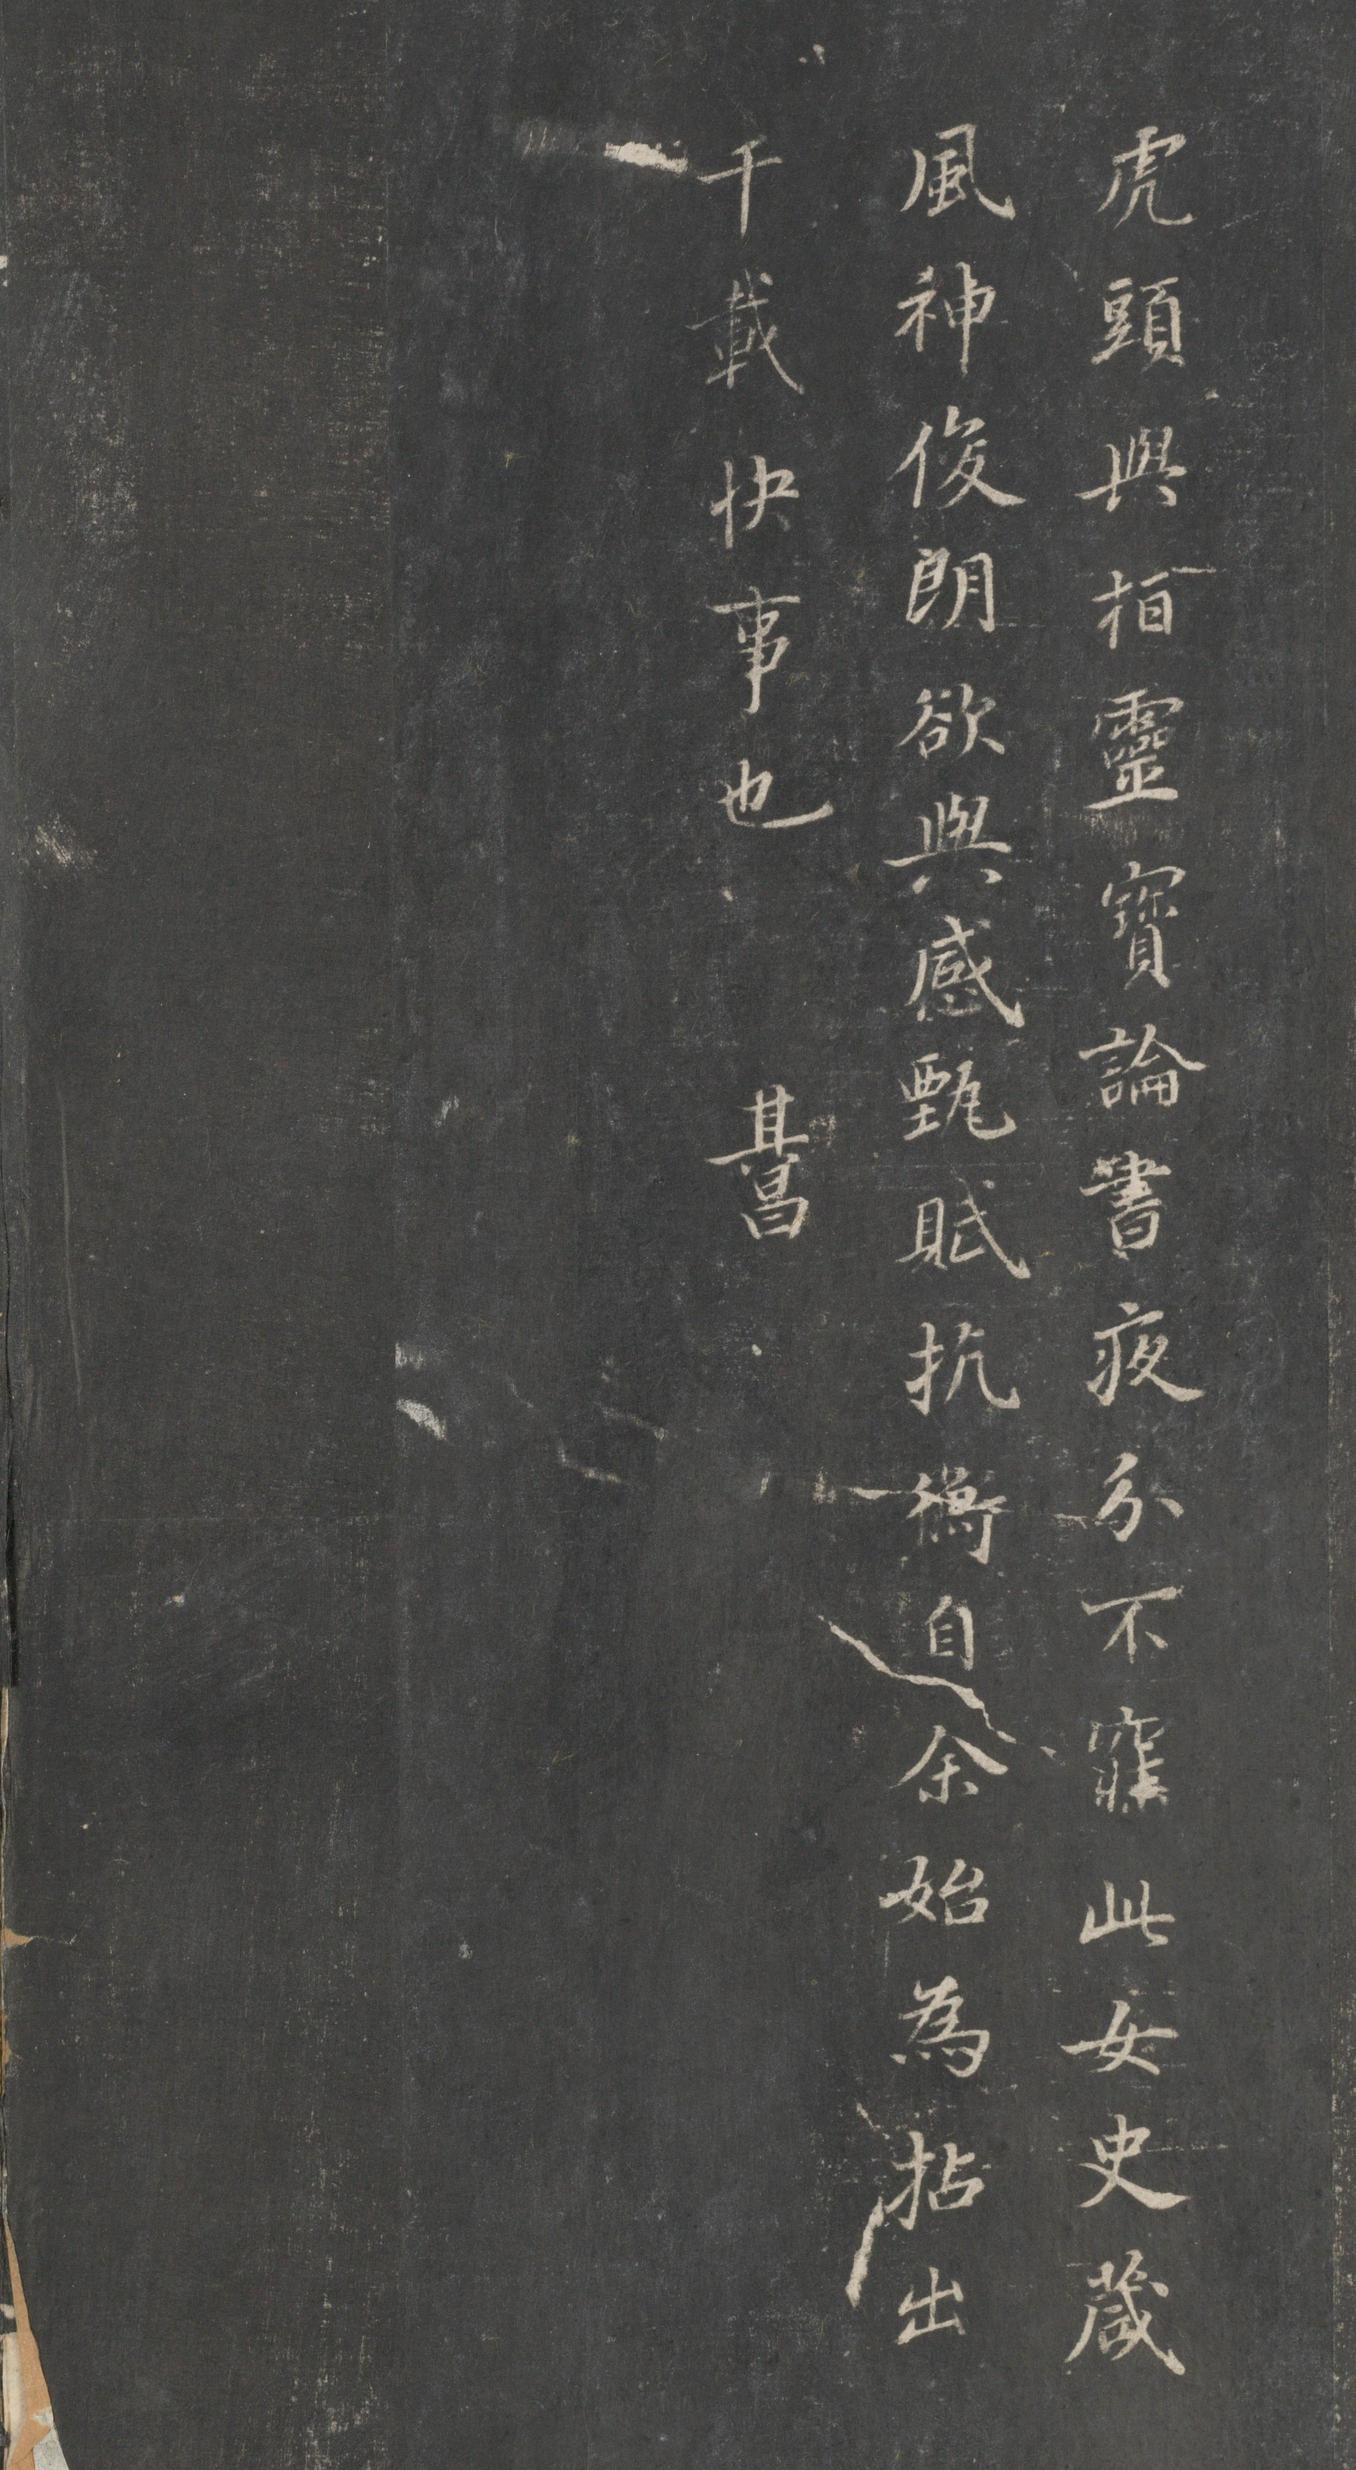 虎頭與桓靈寶論書夜分不寐此女史箴
風神俊朗欲與感甄賦抗衡自余始為拈出
千載快事也 其昌